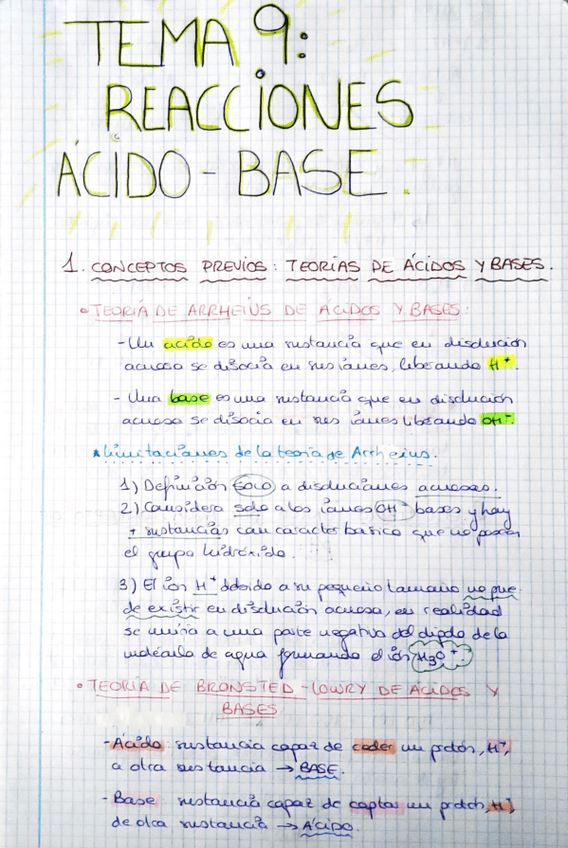 TEMA 9:
REACCIONES
ÁCIDO - BASE.
1. CONCEPTOS PREVIOS: TEORÍAS DE ÁCIDOS Y BASES.
• TEORÍA DE ARRHEIUS DE ÁCIDOS Y BASES:
- Un acido es una sustancia que en disolución
acuosa se disocia en sus iones, liberando H⁺.
- Una base es una sustancia que en disolución
acuosa se disocia en sus iones liberando OH⁻.
▲ Limitaciones de la teoría de Arrheius.
1) Definición SOLO a disoluciones acuosas.
2) Considera solo a los iones OH⁻ bases y hay
+ sustancias con caracter basico que no poseen
el grupo hidróxido.
3) El ión H⁺ debido a su pequeño tamaño no pue-
de existir en disolución acuosa, en realidad
se uniría a una parte negativa del dipolo de la
molécula de agua formando el ión H₃O⁺.
• TEORÍA DE BRONSTED - LOWRY DE ÁCIDOS Y
BASES
- Ácido sustancia capaz de ceder un protón, H⁺,
a otra sustancia → BASE.
- Base sustancia capaz de captar un protón, H⁺,
de otra sustancia → ÁCIDO.